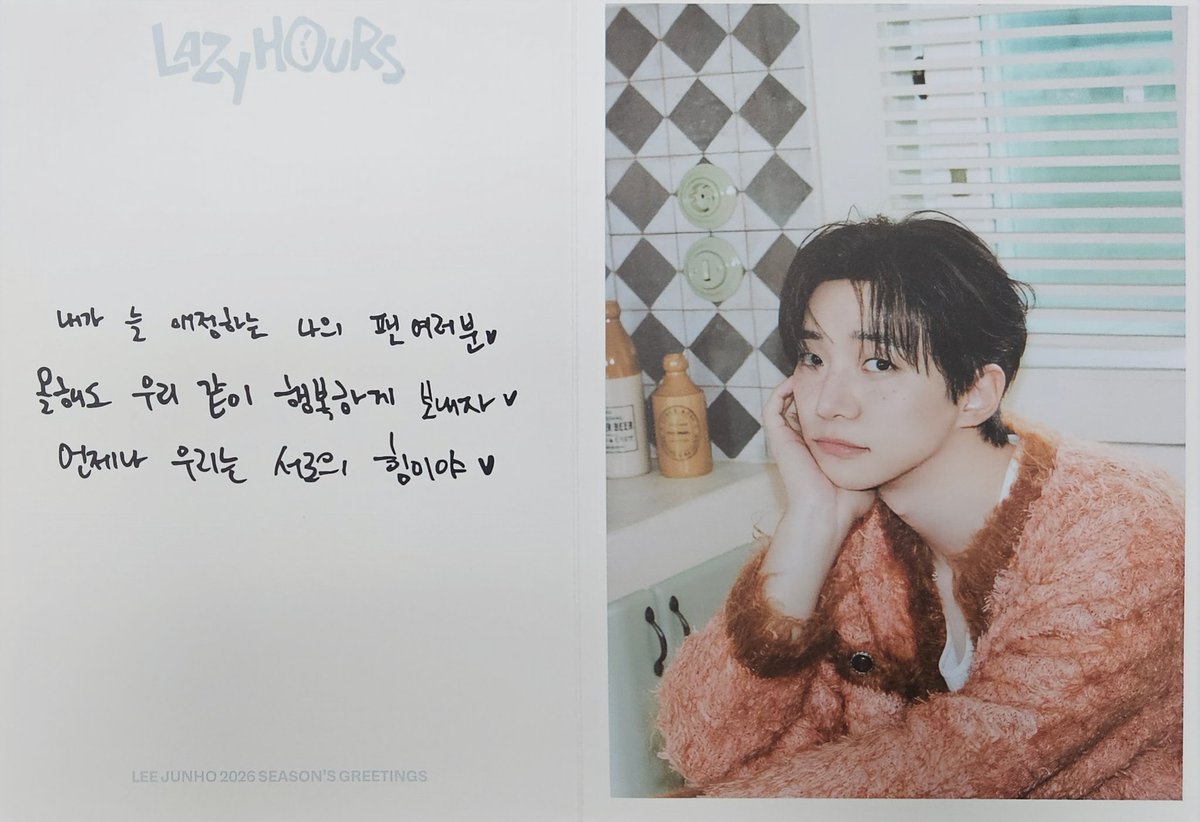 LAZY HOURS
내가 늘 애정하는 나의 팬 여러분♥
올해도 우리 같이 행복하게 보내자♥
언제나 우리는 서로의 힘이야♥
LEE JUNHO 2026 SEASON'S GREETINGS
BEER